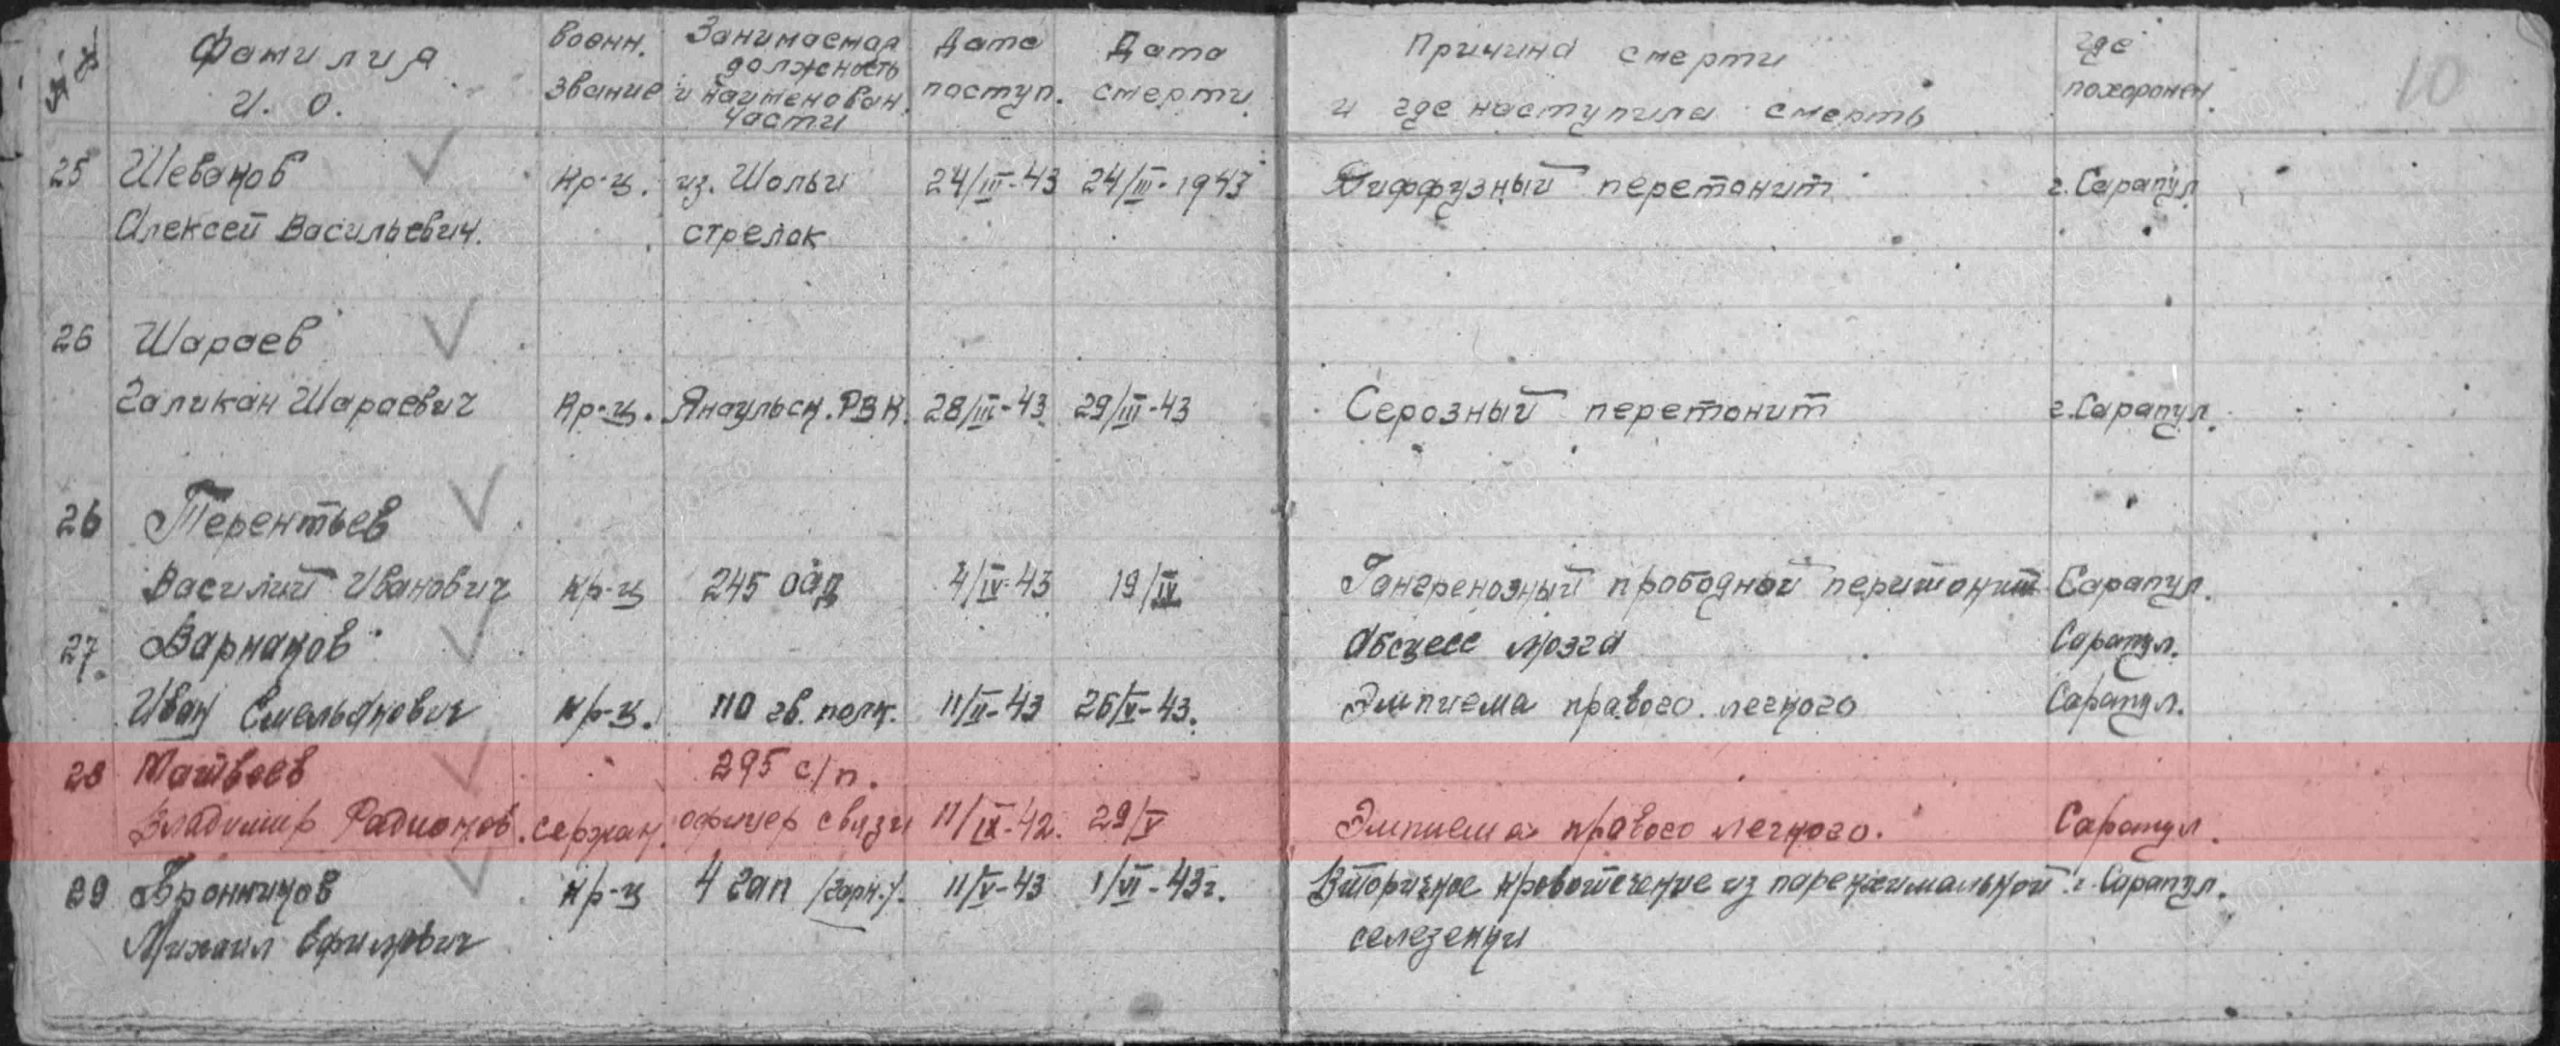 № № Фамилия И. О. Военн. звание Занимаемая должность и наименован. части Дата поступ. Дата смерти Причина смерти и где наступила смерть где похоронен. 10
25 Шеваков Кр-ц. из. Шольи 24/III-43 24/III-1943 Диффузный перетонит г. Сарапул
Алексей Васильевич. стрелок
26 Шараев
Галикан Шараевич Кр-ц. Янаульск. РВК. 28/III-43 29/III-43 Серозный перетонит г. Сарапул.
26 Терентьев
Василий Иванович Кр-ц 245 оад 4/IV-43 19/IV Гангренозный прободной перитонит Сарапул.
27. Варнаков Абсцесс мозга Сарапул.
Иван Емельянович Кр-ц. 110 гв. полк. 11/II-43 26/V-43. Эмпиема правого легкого Сарапул.
28 Матвеев 295 с/п.
Владимир Радионов. сержан. офицер связи 11/IX-42. 29/V Эмпиема правого легкого. Сарапул.
29 Бронников Кр-ц 4 зап /гарн./. 11/V-43 1/VI-43г. Вторичное кровотечение из паренхимальной г. Сарапул.
Михаил Ефимович селезенки